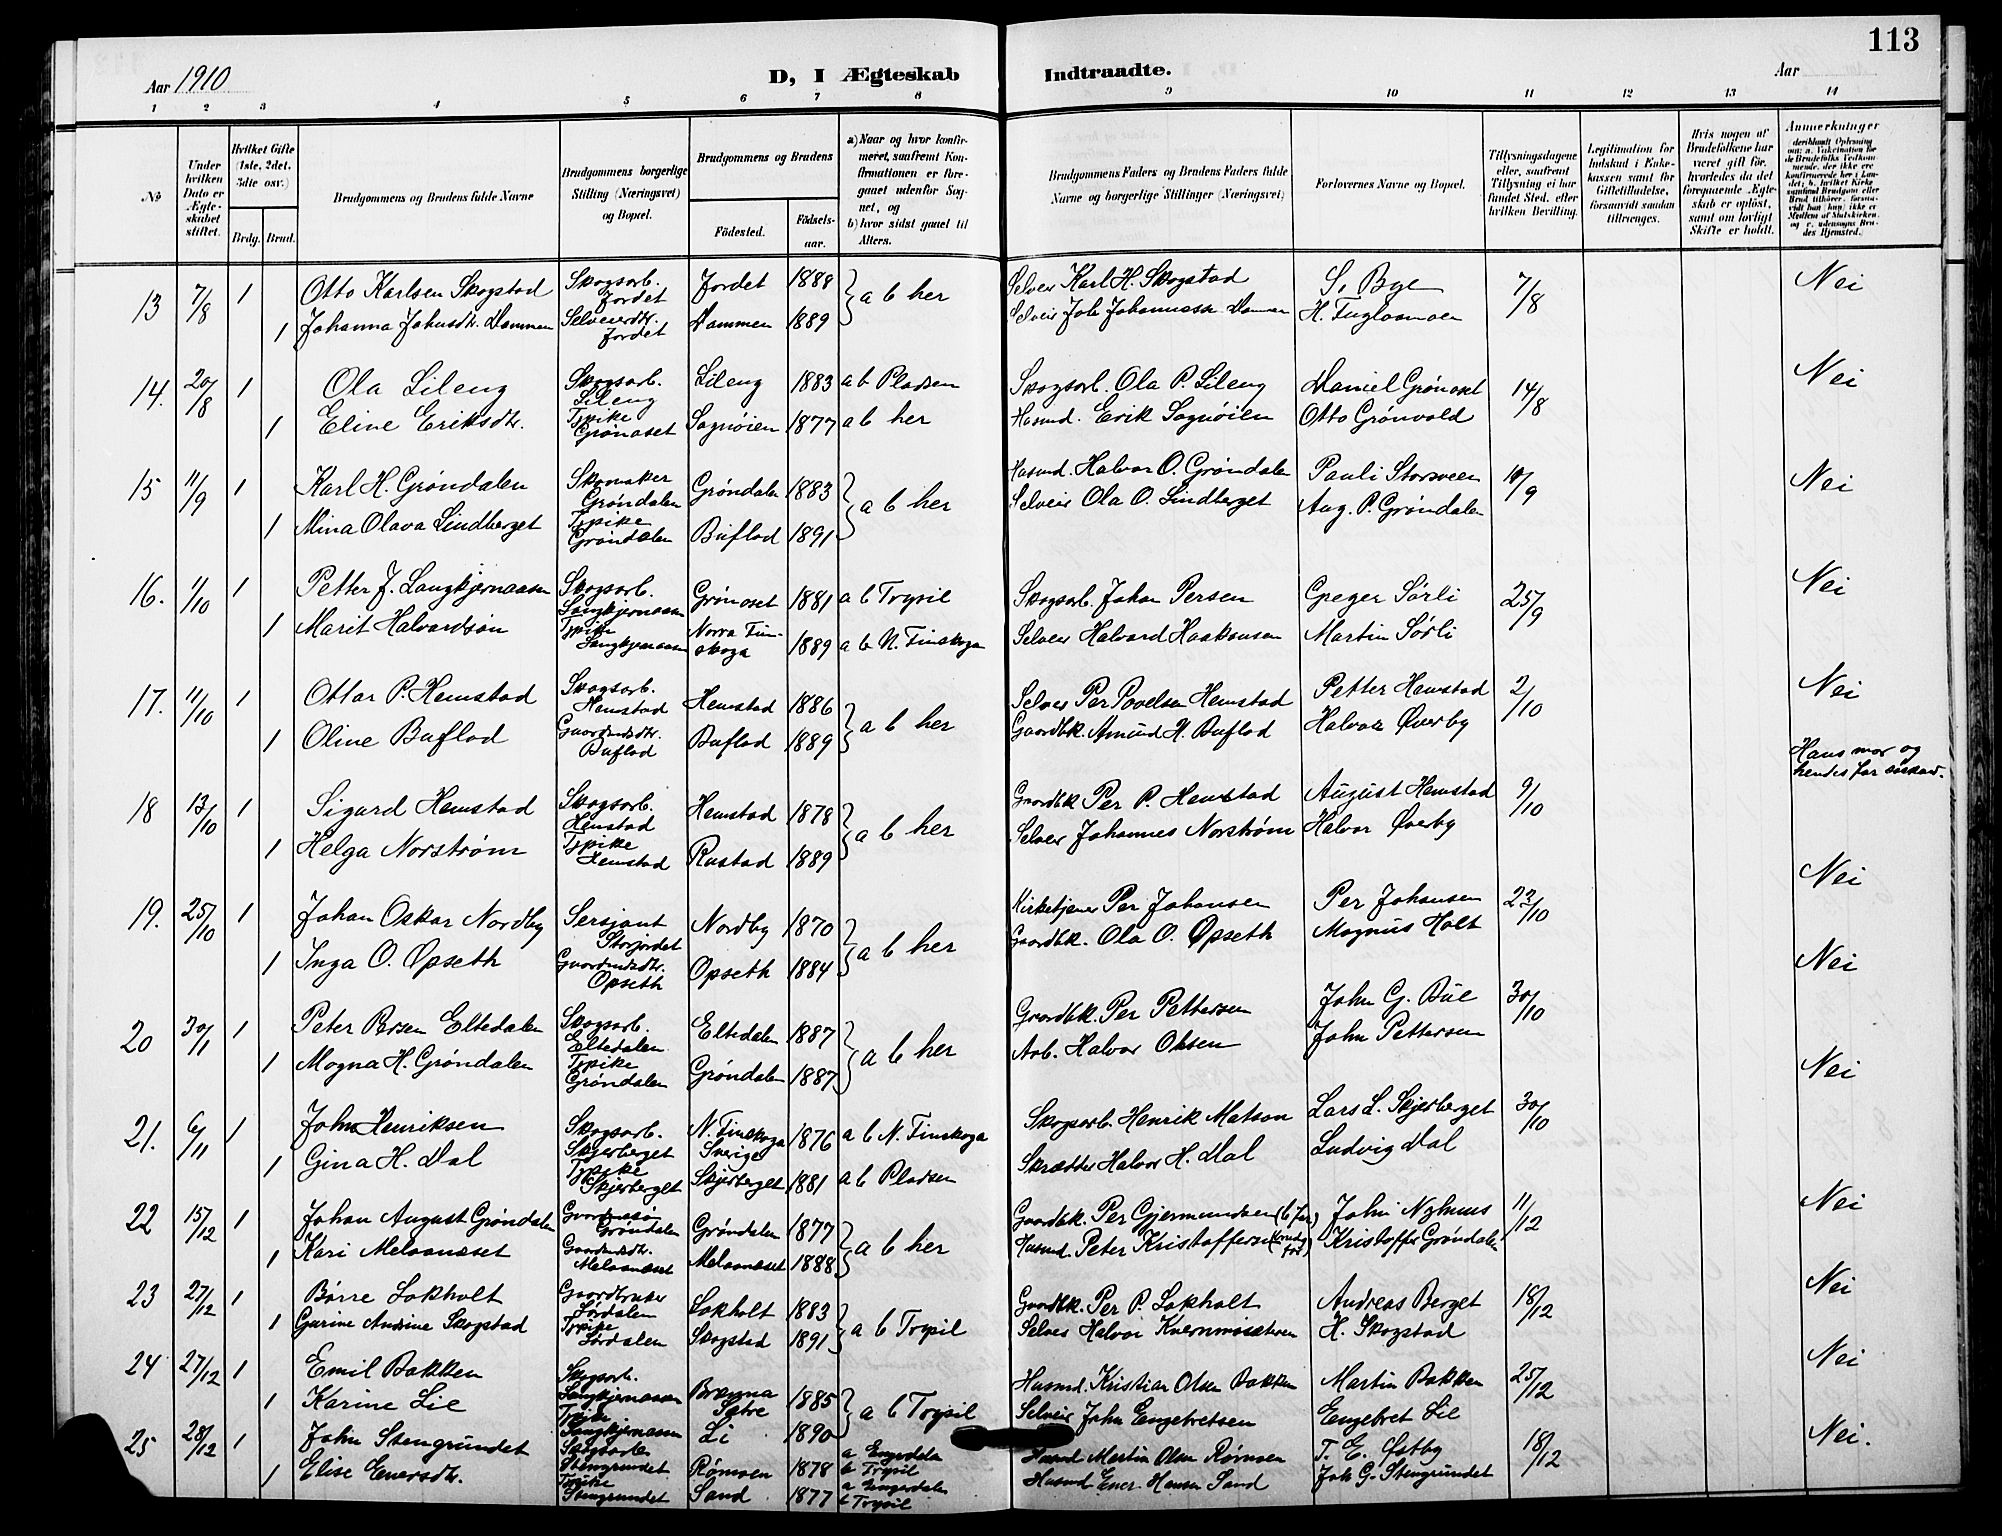 113
Aar 1910
D, I Ægteskab
Indtraadte.
Aar
1 2 3 4 5 6 7 8 9 10 11 12 13 14
No
Under hvilken Dato er Ægteskabet stiftet.
Hvilket Gifte (1ste, 2det, 3die osv.)
Brdg. Brud.
Brudgommens og Brudens fulde Navne
Brudgommens borgerlige Stilling (Næringsvei) og Bopæl.
Brudgommens og Brudens
Fødested.
Fødselsaar.
a) Naar og hvor konfirmeret, saafremt Konfirmationen er foregaaet udenfor Sognet, og
b) hvor sidst gaaet til Alters.
Brudgommens Faders og Brudens Faders fulde Navne og borgerlige Stillinger (Næringsvei)
Forlovernes Navne og Bopæl.
Tillysningsdagene eller, saafremt Tillysning ei har fundet Sted, efter hvilken Bevilling.
Legitimation for Indskud i Enkekassen samt for Giftetilladelse, forsaavidt saadan tiltrænges.
Hvis nogen af Brudefolkene har været gift før, hvorledes da det foregaaende Ægteskab er opløst, samt om lovligt Skifte er holdt.
Anmerkninger
13 7/8 1 Otto Karlsen Skogstad Skogsarb. Jordet Jordet 1888 a b her Selveier Karl H. Skogstad S. Bye 7/8 Nei
1 Johanna Johnsdtr. Dammen Selveierdtr. Jordet Dammen 1889 Selveier Joh Johannessen Dammen H. Fuglaamoen
14. 20/8 1 Ola Lileng Skogsarb. Lileng Lileng 1883 a b Pladsen Skogsarb. Ola P. Lileng Daniel Grønoset 14/8 Nei
1 Eline Eriksdtr. Tpike Grønoset Sognøien 1877 a b her Husmd. Erik Sognøien Otto Grønvold
15 11/9 1 Karl H. Grøndalen Skomaker Grøndalen Grøndalen 1883 a b her Husmd. Halvor O. Grøndalen Pauli Storsveen 10/9 Nei
1 Mina Olava Lindberget Tpike Grøndalen Buflod 1891 Selveier Ola O. Lindberget Aug. P. Grøndalen
16. 1/10 1 Petter J. Langkjernaasen Skogsarb. Langkjernaasen Grønoset 1881 a b Trysil Skogsarb. Johan Persen Greger Sørli 25/9 Nei
1 Marit Halvardson Tpike Langkjernaasen Norra Finskoga 1889 a b N. Finskoga Selveier Halvard Haakonsen Martin Sørli
17. 11/10 1 Ottar P. Hemstad Skogsarb. Hemstad Hemstad 1886 a b her Selveier Per Povelsen Hemstad Petter Hemstad 2/10 Nei
1 Oline Buflod Gaardmdsdtr. Buflod Buflod 1889 Gaardbk. Amund H. Buflod Halvor Øverby
18 13/10 1 Sigurd Hemstad Skogsarb. Hemstad Hemstad 1878 a b her Gaardbk Per P. Hemstad August Hemstad 9/10 Hans mor og hendes far
1 Helga Norstrøm Tpike Hemstad Rustad 1889 Selveier Johannes Norstrøm Halvor Øverby
19. 25/10 1 Johan Oskar Nordby Sersjant Storjordet Nordby 1870 a b her Kirketjener Per Johansen Per Johansen 22/10 Nei
1 Inga O. Opseth Gaardmdsdtr. Opseth Opseth 1884 Gaardbk. Ola O. Opseth Magnus Holt
20 30/1 1 Peter Persen Eltedalen Skogsarb. Eltedalen Eltedalen 1887 a b her Gaardbk. Per Pettersen John G. Bue 30/10 Nei
1 Mogna H. Grøndalen Tpike Grøndalen Grøndalen 1887 Arb. Halvor Olsen John Pettersen
21. 6/11 1 John Henriksen Skogsarb. Skjerberget N. Finskoga Sverige 1876 a b N. Finskoga Skogsarb. Henrik Matson Lars L. Skjerberget 30/10 Nei
1 Gina H. Dal Tpike Skjerberget Skjerberget 1881 a b Pladsen Skrædder Halvor H. Dal Ludvig Dal
22 15/12 1 Johan August Grøndalen Grøndalen Grøndalen 1877 a b her Gaardbk. Per Gjermundsen John Nyhuus 11/12 Nei
1 Kari Melvanæset Gaardmdsdtr. Melvanæset Melvanæset 1888 Husmd. Peter Kristoffersen Kristoffer Grøndalen
23 27/12 1 Børre Lokholt Gaardbruker Lørdalen Lokholt 1883 a b Trysil Gaardbk. Per P. Lokholt Andreas Berget 18/12 Nei
1 Gurine Andrine Skogstad Tpike Lørdalen Skogstad 1891 Selveier Halvor Kvernmosæteren H. Skogstad
24 27/12 1 Emil Bakken Skogsarb. Langkjernaasen Brænna Sætre 1885 a b Trysil Husmd. Kristian Olsen Bakken Martin Bakken 25/12 Nei
1 Karine Lie Tpike Langkjernaasen Li 1890 Selveier John Engebretsen Engebret Lie
25 28/12 1 John Stengrundet Skogsarb. Stengrundet Rømoen 1878 a Engerdalen b Trysil Husmd Martin Olsen Rømoen T. E. Østby 18/12 Nei.
1 Elise Enersdtr. Tpike Stengrundet Sand 1877 a Engerdalen b Trysil Husmd Ener Hansen Sand Joh G. Stengrundet